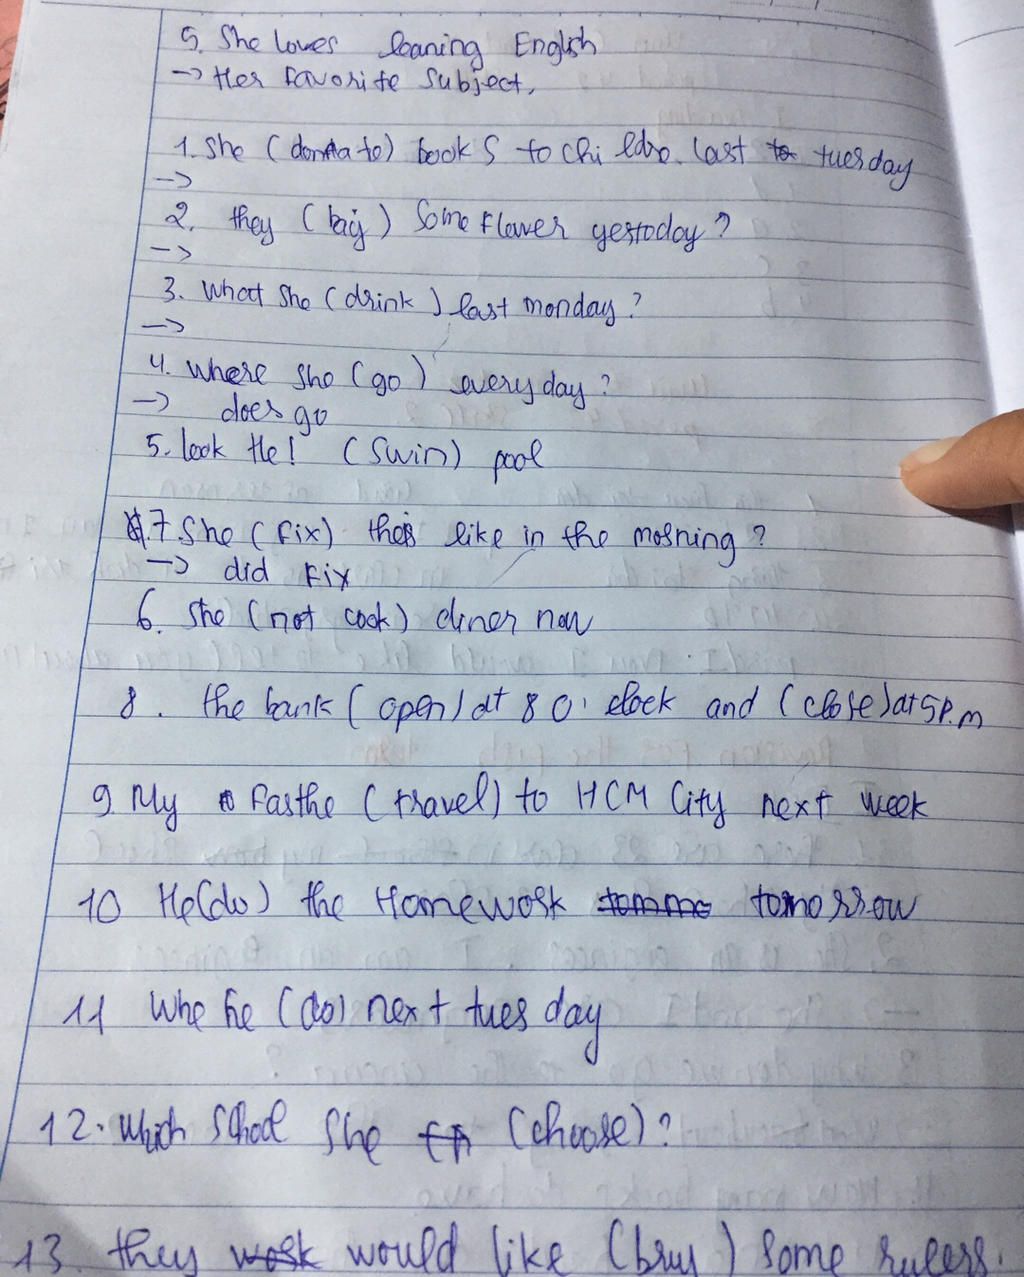 5. She loves leaning English
→ Her favorite subject.
1. She (donate) book S to chi ldre. last tuesday
→
2. they (buy) Some flower yestoday?
→
3. What she (drink) last monday?
→
4. where she (go) every day?
→ does go
5. look He! (Swin) pool
7. She (fix) the like in the morning?
→ did fix
6. She (not cook) diner now
8. the bank (open) at 8 O' clock and (close) at 5P.m
9. My Fasthe (travel) to HCM City next week
10 He(do) the Homework tomorrow
11 Whe he (do) next tues day
12. which School She (choose)?
13. they would like (buy) Some rulers.